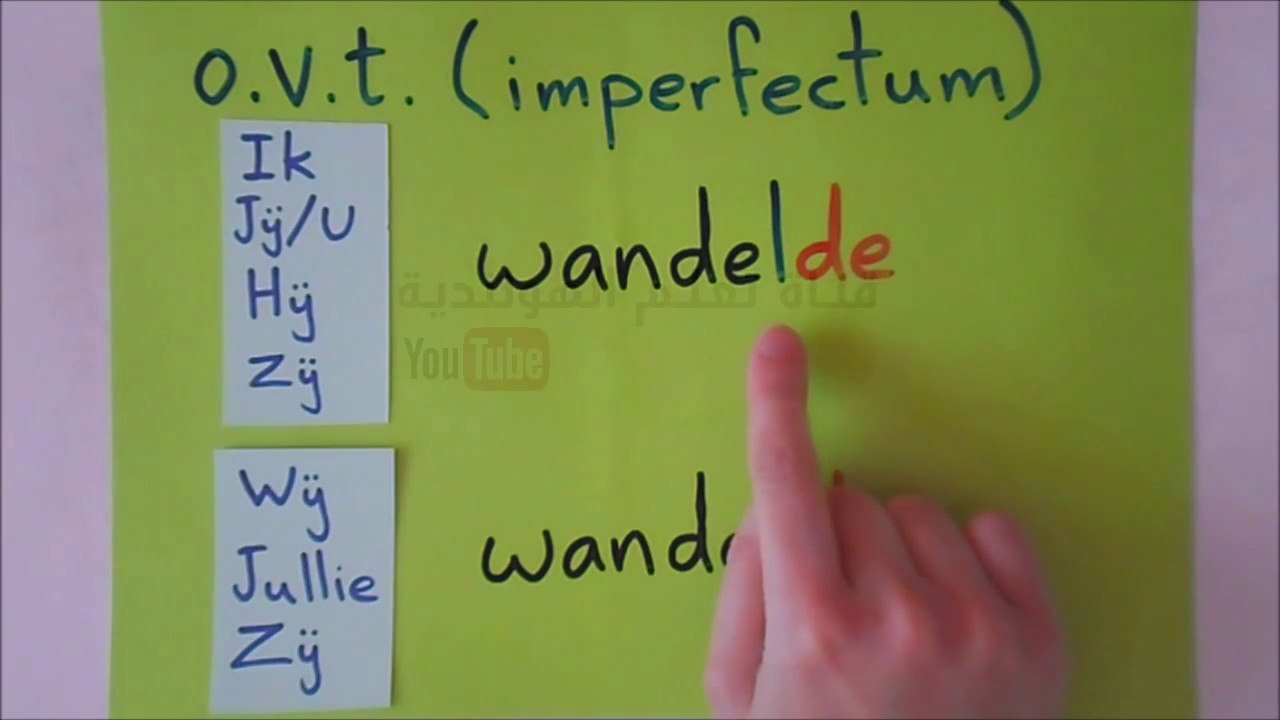 o.v.t. (imperfectum)
Ik
Jÿ/U
Hÿ
Zÿ
wandelde
قناة تعلم الهولندية
YouTube
Wÿ
Jullie
Zÿ